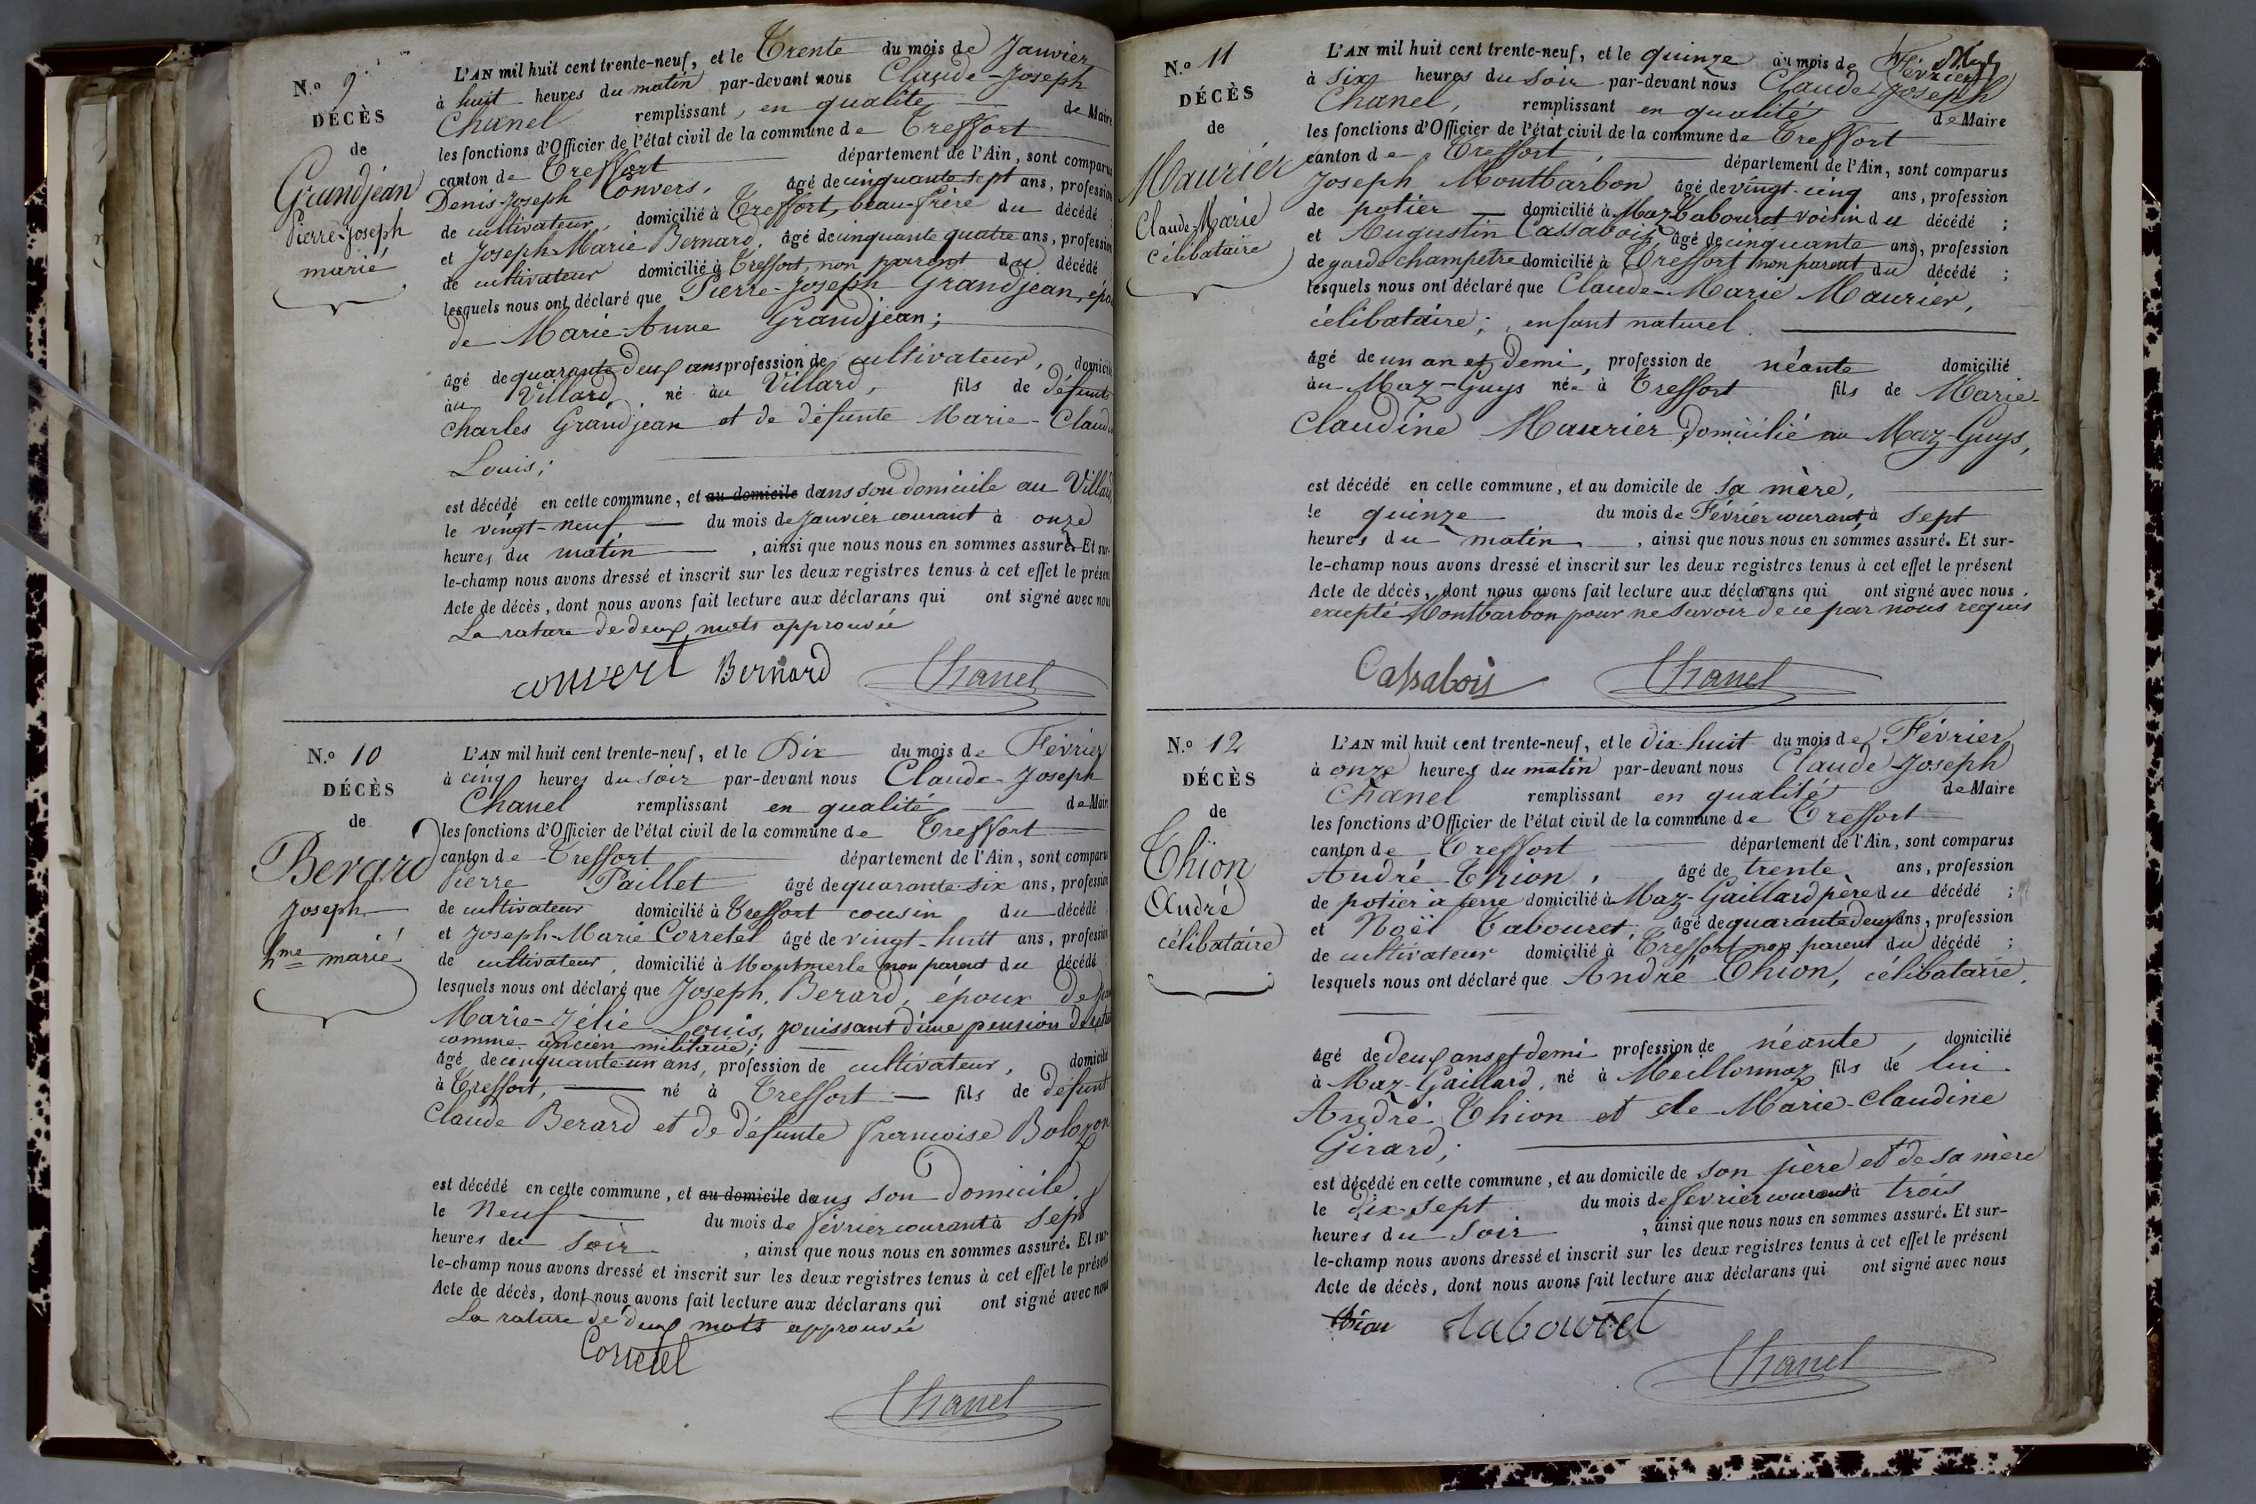 N.º 9
DÉCÈS
de
Grandjean
Pierre-Joseph
marié
L'AN mil huit cent trente-neuf, et le Trente du mois de Janvier
à huit heures du matin par-devant nous Claude-Joseph
Chanel remplissant, en qualité de Maire
les fonctions d'Officier de l'état civil de la commune de Treffort
canton de Treffort département de l'Ain, sont comparus
Denis-Joseph Convers, âgé de cinquante-sept ans, profession
de cultivateur, domicilié à Treffort, beau-frère du décédé ;
et Joseph-Marie Bernard, âgé de cinquante quatre ans, profession
de cultivateur domicilié à Treffort, non parent du décédé
lesquels nous ont déclaré que Pierre-Joseph Grandjean, épo
de Marie-Anne Grandjean;
âgé de quarante deux ans profession de cultivateur, domicilié
au Villard né au Villard, fils de défunts
Charles Grandjean et de défunte Marie-Claud
Louis;
est décédé en cette commune, et au domicile dans son domicile au Villard
le vingt-neuf du mois de Janvier courant à onze
heures du matin , ainsi que nous nous en sommes assuré. Et sur-
le-champ nous avons dressé et inscrit sur les deux registres tenus à cet effet le présent
Acte de décès, dont nous avons fait lecture aux déclarans qui ont signé avec nous
La rature de deux mots approuvée
convert Bernard Chanel
N.º 10
DÉCÈS
de
Berard
Joseph
hme marié
L'AN mil huit cent trente-neuf, et le Dix du mois de Février
à cinq heures du soir par-devant nous Claude-Joseph
Chanel remplissant en qualité de Maire
les fonctions d'Officier de l'état civil de la commune de Treffort
canton de Treffort département de l'Ain, sont comparus
Pierre Paillet âgé de quarante-six ans, profession
de cultivateur domicilié à Treffort cousin du décédé
et Joseph-Marie Corretel âgé de vingt-huit ans, profession
de cultivateur, domicilié à Montmerle non parent du décédé
lesquels nous ont déclaré que Joseph Berard, époux de
Marie-Zélie Louis, jouissant d'une pension de retraite
comme ancien militaire;
âgé de cinquante-un ans, profession de cultivateur, domicilié
à Treffort, né à Treffort fils de défunt
Claude Berard et de défunte francoise Bolozon
est décédé en cette commune, et au domicile dans son domicile,
le Neuf du mois de février courant à sept
heures du soir , ainsi que nous nous en sommes assuré. Et sur-
le-champ nous avons dressé et inscrit sur les deux registres tenus à cet effet le présent
Acte de décès, dont nous avons fait lecture aux déclarans qui ont signé avec nous
La rature de deux mots approuvée
Corretel
Chanel
N.º 11
DÉCÈS
de
Maurier
Claude-Marie
célibataire
L'AN mil huit cent trente-neuf, et le quinze du mois de Février
à six heures du soir par-devant nous Claude-Joseph
Chanel, remplissant en qualité de Maire
les fonctions d'Officier de l'état civil de la commune de Treffort
canton de Treffort, département de l'Ain, sont comparus
Joseph Montbarbon âgé de vingt-cinq ans, profession
de potier domicilié à Maz-Tabouret voisin du décédé ;
et Augustin Cassabois, âgé de cinquante ans, profession
de garde champêtre domicilié à Treffort non parent du décédé ;
lesquels nous ont déclaré que Claude-Marie Maurier,
célibataire; enfant naturel.
âgé de un an et demi, profession de néante domicilié
au Maz-Guys né à Treffort fils de Marie-
Claudine Maurier domicilié au Maz-Guys,
est décédé en cette commune, et au domicile de sa mère,
le quinze du mois de Février courant à sept
heures du matin , ainsi que nous nous en sommes assuré. Et sur-
le-champ nous avons dressé et inscrit sur les deux registres tenus à cet effet le présent
Acte de décès, dont nous avons fait lecture aux déclarans qui ont signé avec nous.
excepté Montbarbon pour ne savoir de ce par nous requis
Cassabois Chanel
N.º 12
DÉCÈS
de
Thion
André
célibataire
L'AN mil huit cent trente-neuf, et le dix-huit du mois de Février
à onze heures du matin par-devant nous Claude-Joseph
Chanel remplissant en qualité de Maire
les fonctions d'Officier de l'état civil de la commune de Treffort
canton de Treffort département de l'Ain, sont comparus
André Thion, âgé de trente ans, profession
de potier à terre domicilié à Maz-Gaillard père du décédé ;
et Noël Tabouret, âgé de quarante deux ans, profession
de cultivateur domicilié à Treffort non parent du décédé ;
lesquels nous ont déclaré que André Thion, célibataire,
âgé de deux ans et demi profession de néante, domicilié
à Maz-Gaillard, né à Meillonnaz fils de lui
André Thion et de Marie-Claudine
Girard;
est décédé en cette commune, et au domicile de son père et de sa mère
le dix-sept du mois de février courant à trois
heures du soir , ainsi que nous nous en sommes assuré. Et sur-
le-champ nous avons dressé et inscrit sur les deux registres tenus à cet effet le présent
Acte de décès, dont nous avons fait lecture aux déclarans qui ont signé avec nous
thion tabouret
Chanel